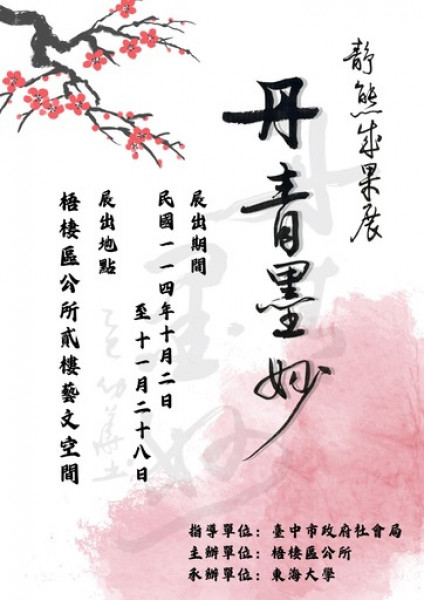 靜態成果展
丹青墨妙
展出期間
民國一一四年十月二日
至十一月二十八日
展出地點
梧棲區公所貳樓藝文空間
指導單位：臺中市政府社會局
主辦單位：梧棲區公所
承辦單位：東海大學